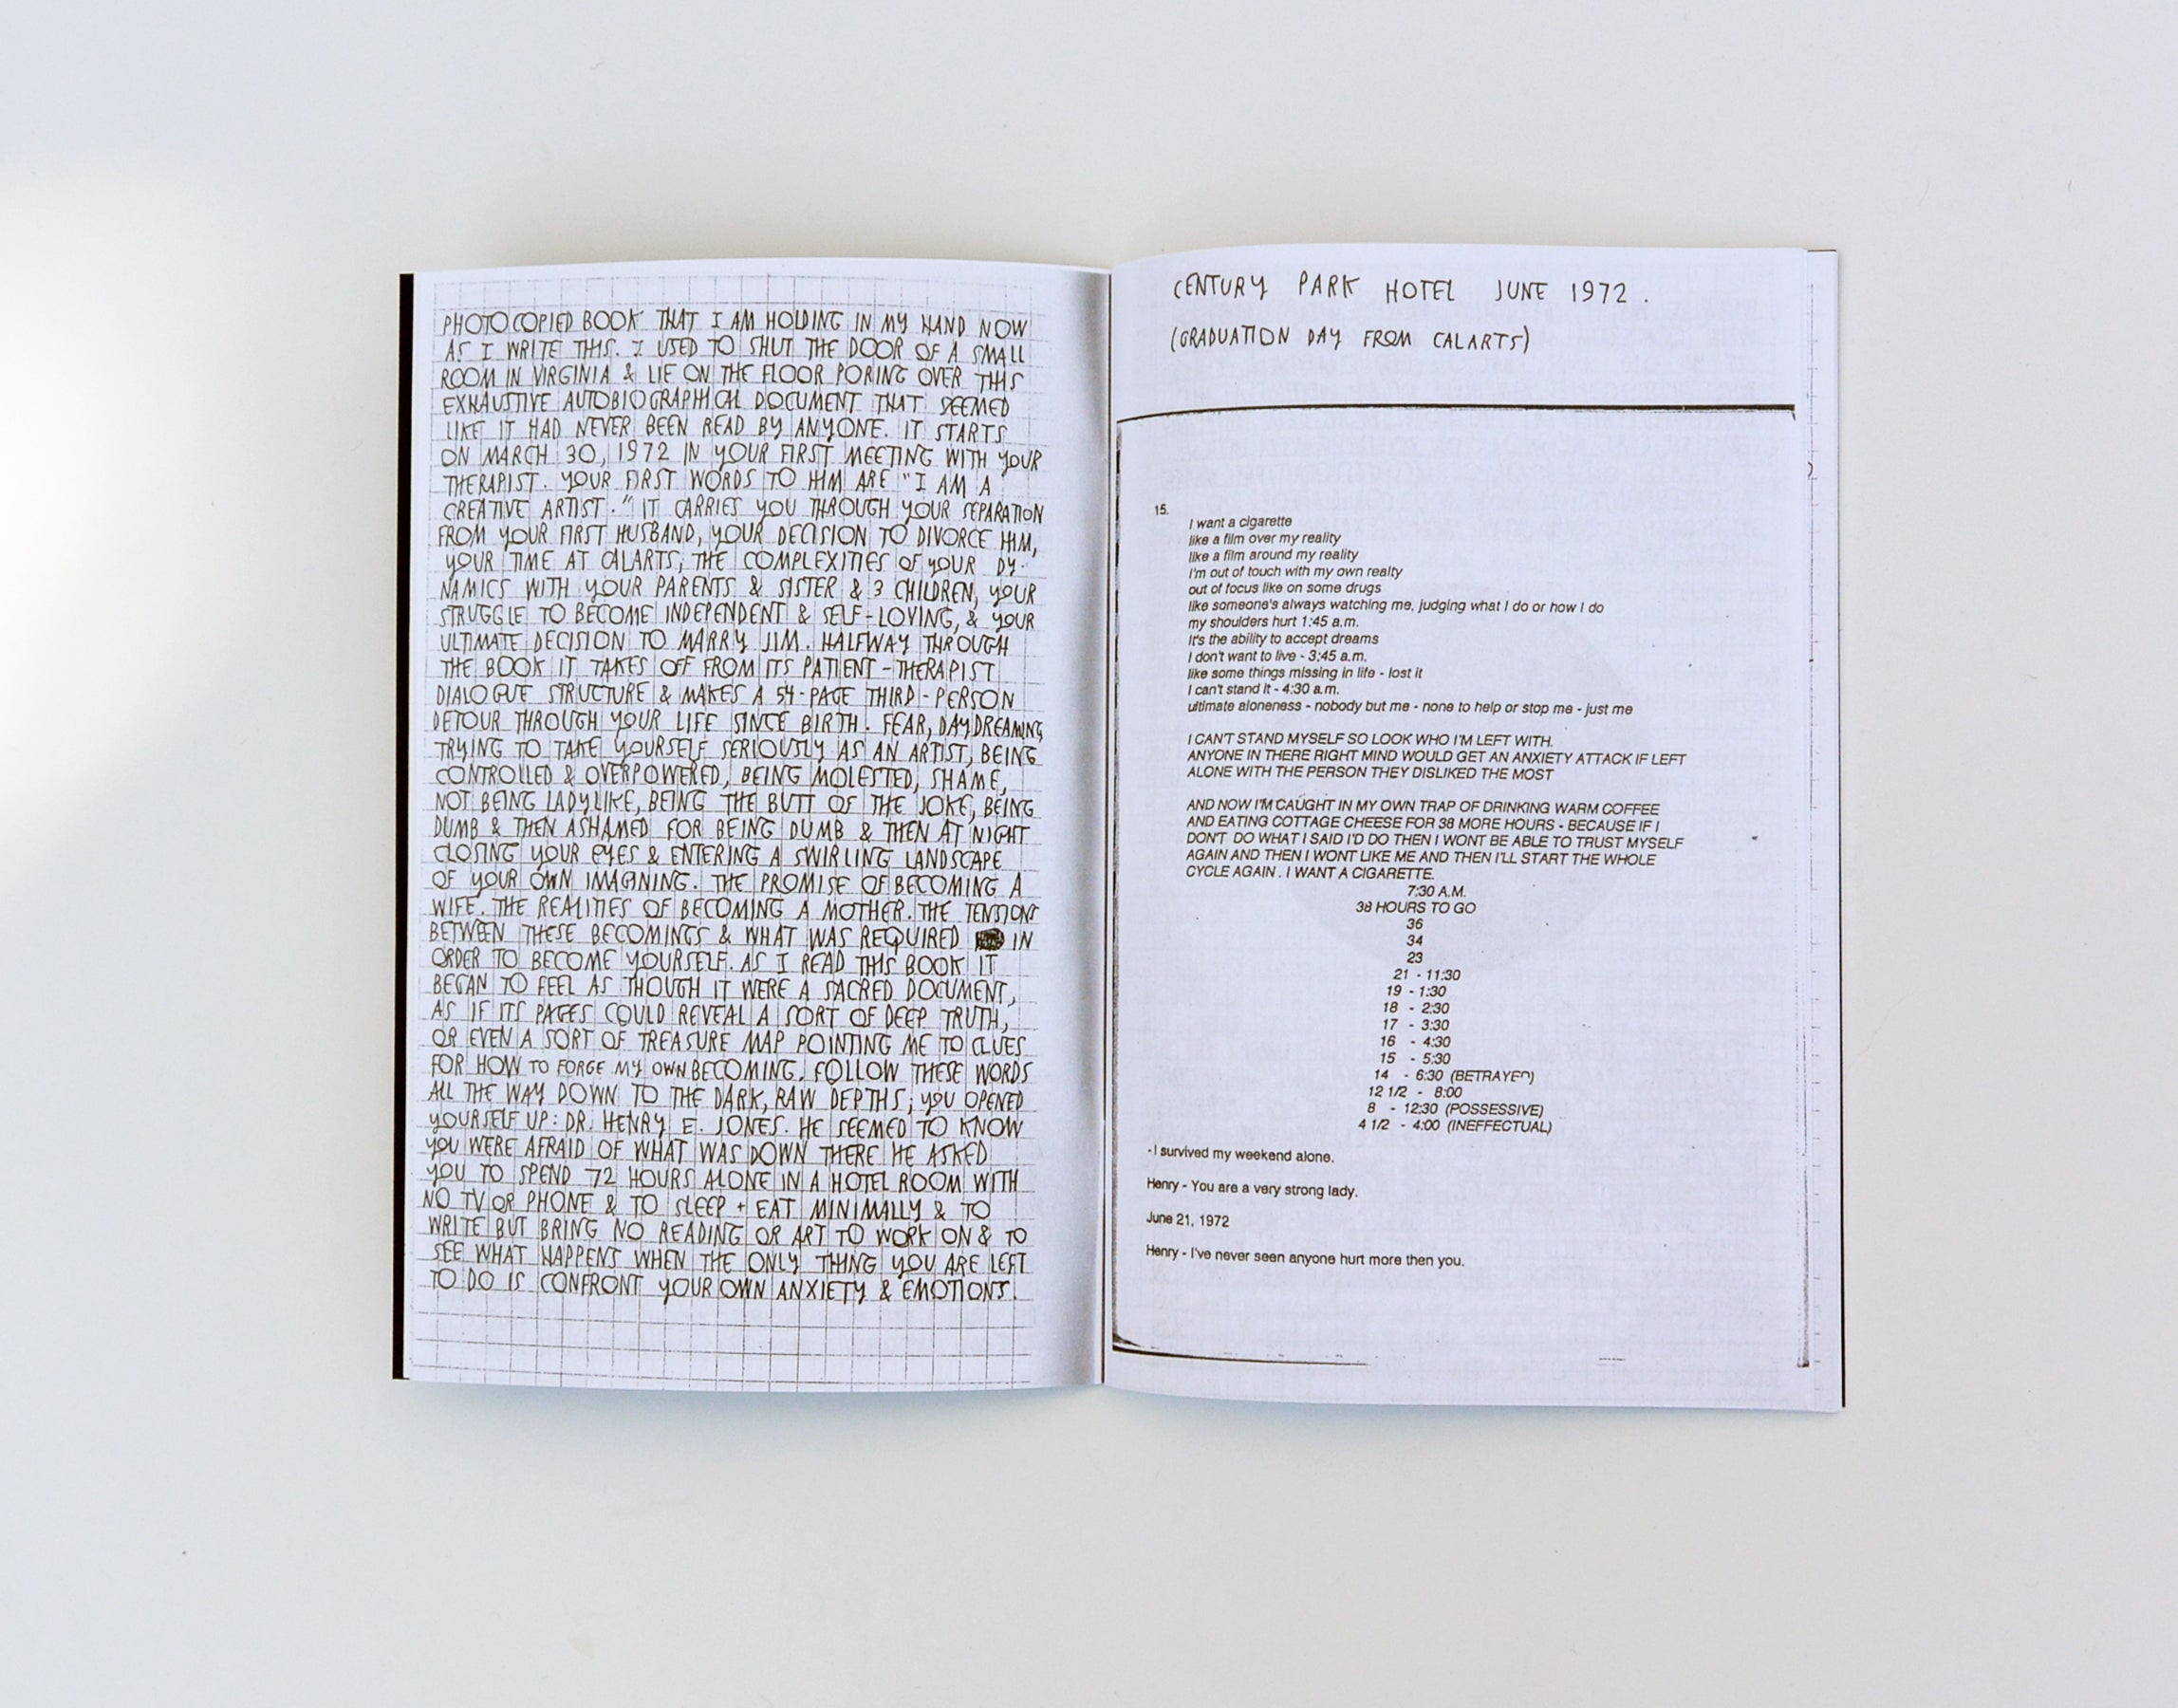 PHOTOCOPIED BOOK THAT I AM HOLDING IN MY HAND NOW
AS I WRITE THIS. I USED TO SHUT THE DOOR OF A SMALL
ROOM IN VIRGINIA & LIE ON THE FLOOR PORING OVER THIS
EXHAUSTIVE AUTOBIOGRAPHICAL DOCUMENT THAT SEEMED
LIKE IT HAD NEVER BEEN READ BY ANYONE. IT STARTS
ON MARCH 30, 1972 IN YOUR FIRST MEETING WITH YOUR
THERAPIST. YOUR FIRST WORDS TO HIM ARE "I AM A
CREATIVE ARTIST." IT CARRIES YOU THROUGH YOUR SEPARATION
FROM YOUR FIRST HUSBAND, YOUR DECISION TO DIVORCE HIM,
YOUR TIME AT CALARTS, THE COMPLEXITIES OF YOUR DY-
NAMICS WITH YOUR PARENTS & SISTER & 3 CHILDREN, YOUR
STRUGGLE TO BECOME INDEPENDENT & SELF-LOVING, & YOUR
ULTIMATE DECISION TO MARRY JIM. HALFWAY THROUGH
THE BOOK IT TAKES OFF FROM ITS PATIENT-THERAPIST
DIALOGUE STRUCTURE & MAKES A 54-PAGE THIRD-PERSON
DETOUR THROUGH YOUR LIFE SINCE BIRTH. FEAR, DAYDREAMING,
TRYING TO TAKE YOURSELF SERIOUSLY AS AN ARTIST, BEING
CONTROLLED & OVERPOWERED, BEING MOLESTED, SHAME,
NOT BEING LADYLIKE, BEING THE BUTT OF THE JOKE, BEING
DUMB & THEN ASHAMED FOR BEING DUMB & THEN AT NIGHT
CLOSING YOUR EYES & ENTERING A SWIRLING LANDSCAPE
OF YOUR OWN IMAGINING. THE PROMISE OF BECOMING A
WIFE. THE REALITIES OF BECOMING A MOTHER. THE TENSIONS
BETWEEN THESE BECOMINGS & WHAT WAS REQUIRED IN
ORDER TO BECOME YOURSELF. AS I READ THIS BOOK IT
BEGAN TO FEEL AS THOUGH IT WERE A SACRED DOCUMENT,
AS IF ITS PAGES COULD REVEAL A SORT OF DEEP TRUTH,
OR EVEN A SORT OF TREASURE MAP POINTING ME TO CLUES
FOR HOW TO FORGE MY OWN BECOMING. FOLLOW THESE WORDS
ALL THE WAY DOWN TO THE DARK, RAW DEPTHS; YOU OPENED
YOURSELF UP: DR. HENRY E. JONES. HE SEEMED TO KNOW
YOU WERE AFRAID OF WHAT WAS DOWN THERE HE ASKED
YOU TO SPEND 72 HOURS ALONE IN A HOTEL ROOM WITH
NO TV OR PHONE & TO SLEEP + EAT MINIMALLY & TO
WRITE BUT BRING NO READING OR ART TO WORK ON & TO
SEE WHAT HAPPENS WHEN THE ONLY THING YOU ARE LEFT
TO DO IS CONFRONT YOUR OWN ANXIETY & EMOTIONS.
CENTURY PARK HOTEL JUNE 1972.
(GRADUATION DAY FROM CALARTS)
15.
I want a cigarette
like a film over my reality
like a film around my reality
I'm out of touch with my own realty
out of focus like on some drugs
like someone's always watching me, judging what I do or how I do
my shoulders hurt 1:45 a.m.
It's the ability to accept dreams
I don't want to live - 3:45 a.m.
like some things missing in life - lost it
I can't stand it - 4:30 a.m.
ultimate aloneness - nobody but me - none to help or stop me - just me
I CAN'T STAND MYSELF SO LOOK WHO I'M LEFT WITH.
ANYONE IN THERE RIGHT MIND WOULD GET AN ANXIETY ATTACK IF LEFT
ALONE WITH THE PERSON THEY DISLIKED THE MOST
AND NOW I'M CAUGHT IN MY OWN TRAP OF DRINKING WARM COFFEE
AND EATING COTTAGE CHEESE FOR 38 MORE HOURS - BECAUSE IF I
DON'T DO WHAT I SAID I'D DO THEN I WONT BE ABLE TO TRUST MYSELF
AGAIN AND THEN I WONT LIKE ME AND THEN I'LL START THE WHOLE
CYCLE AGAIN. I WANT A CIGARETTE.
7:30 A.M.
38 HOURS TO GO
36
34
23
21 - 11:30
19 - 1:30
18 - 2:30
17 - 3:30
16 - 4:30
15 - 5:30
14 - 6:30 (BETRAYED)
12 1/2 - 8:00
8 - 12:30 (POSSESSIVE)
4 1/2 - 4:00 (INEFFECTUAL)
- I survived my weekend alone.
Henry - You are a very strong lady.
June 21, 1972
Henry - I've never seen anyone hurt more then you.